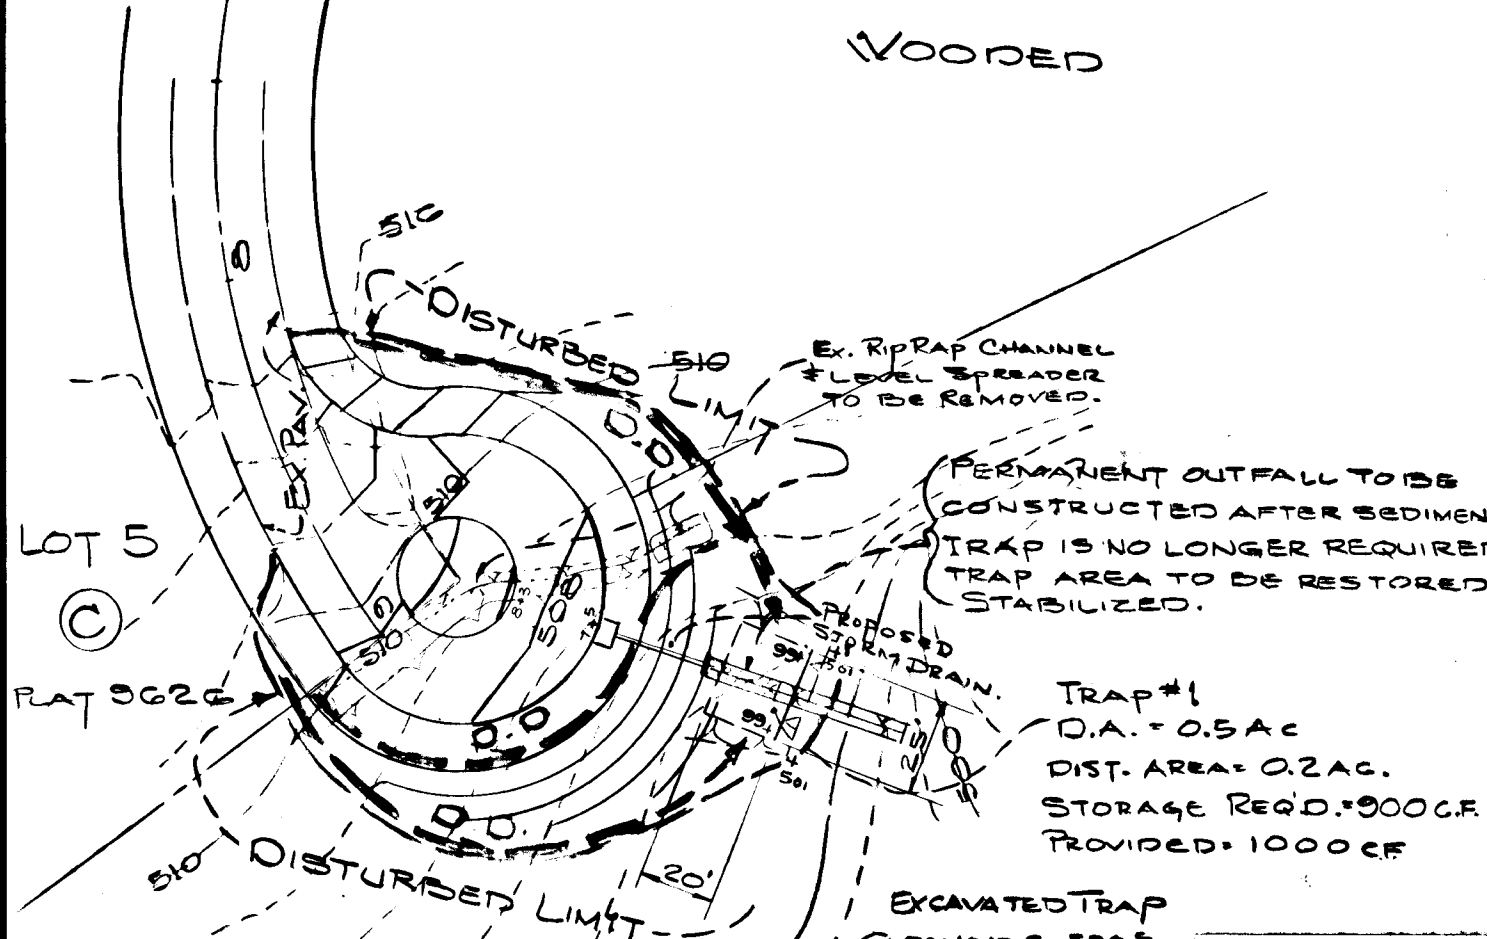 WOODED
516
DISTURBED LIMIT
510
Ex. RIPRAP CHANNEL
& LEVEL SPREADER
TO BE REMOVED.
D.D.
EX. PAV.
510
PERMANENT OUTFALL TO BE
CONSTRUCTED AFTER SEDIMEN
TRAP IS NO LONGER REQUIRED
TRAP AREA TO BE RESTORED
STABILIZED.
LOT 5
C
508
510
PROPOSED
STORM DRAIN.
501
PLAT 9626
D.D.
TRAP #1
D.A. = 0.5 AC
DIST. AREA = 0.2 AC.
STORAGE REQ'D. = 900 C.F.
PROVIDED = 1000 CF
25'
500
501
D.D.
510
DISTURBED LIMIT
20'
EXCAVATED TRAP